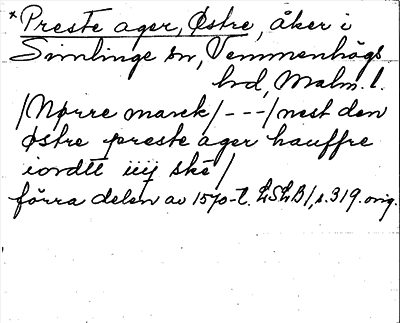 *Preste ager, Østre, åker i
Simlinge sn, Vemmenhögs
hd, Malm. l.
/Nørre marck/---/nest den
østre preste ager hauffre
iordtt iiij ske/
förra delen av 1570-t. LSLB/, s. 319. orig.